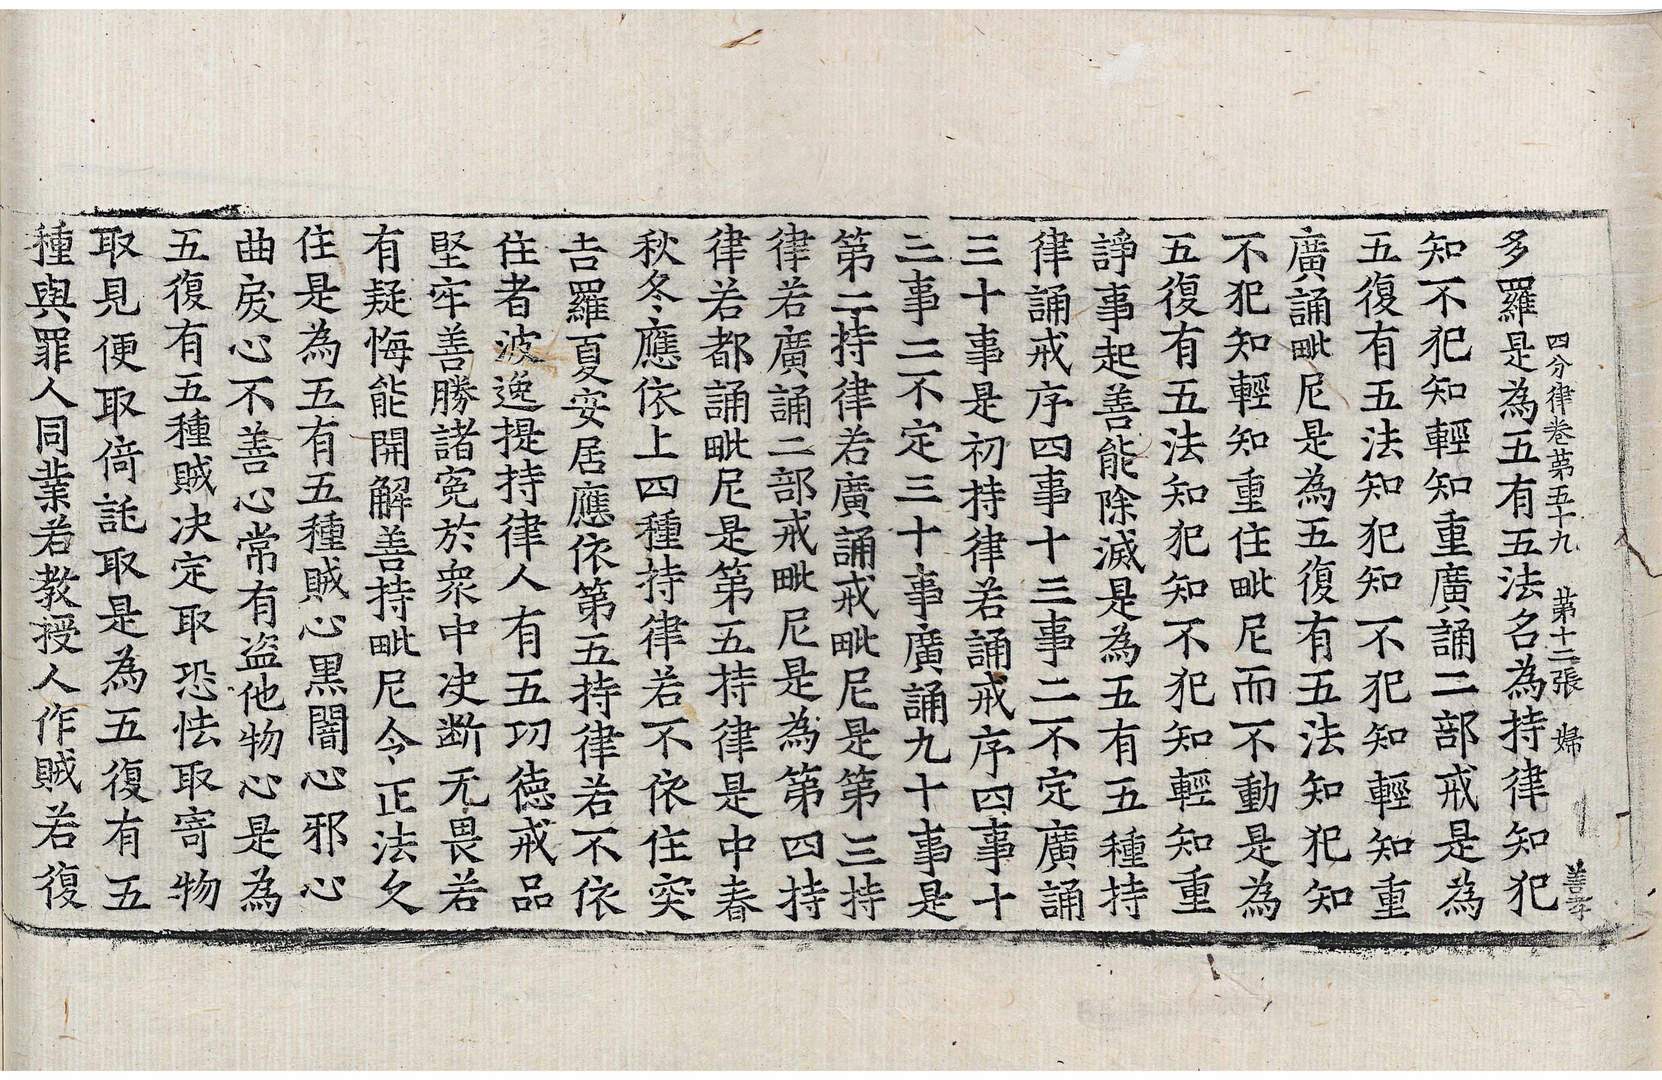 四分律卷第五十九　第十二張　婦　善孝
多羅是為五有五法名為持律知犯
知不犯知輕知重廣誦二部戒是為
五復有五法知犯知不犯知輕知重
廣誦毗尼是為五復有五法知犯知
不犯知輕知重住毗尼而不動是為
五復有五法知犯知不犯知輕知重
諍事起善能除滅是為五有五種持
律誦戒序四事十三事二不定廣誦
三十事是初持律若誦戒序四事十
三事二不定三十事廣誦九十事是
第二持律若廣誦戒毗尼是第三持
律若廣誦二部戒毗尼是為第四持
律若都誦毗尼是第五持律是中春
秋冬應依上四種持律若不依住突
吉羅夏安居應依第五持律若不依
住者波逸提持律人有五功德戒品
堅牢善勝諸冤於衆中决断无畏若
有疑悔能開解善持毗尼令正法久
住是為五有五種賊心黑闇心邪心
曲戾心不善心常有盗他物心是為
五復有五種賊决定取恐怯取寄物
取見便取倚託取是為五復有五
種與罪人同業若教授人作賊若復